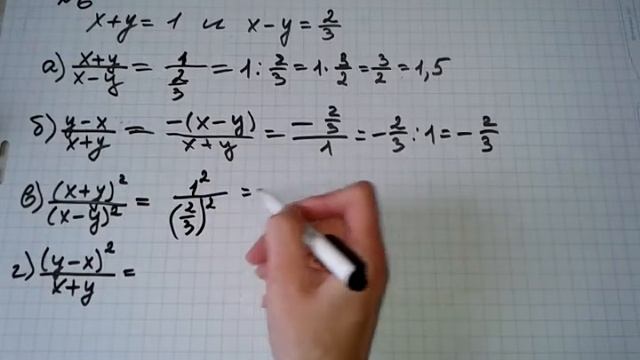 x+y=1 и x-y=2/3
а) (x+y)/(x-y) = 1/(2/3) = 1 : 2/3 = 1 · 3/2 = 3/2 = 1,5
б) (y-x)/(x+y) = -(x-y)/(x+y) = (-2/3)/1 = -2/3 : 1 = -2/3
в) (x+y)²/(x-y)² = 1²/(2/3)² =
г) (y-x)²/(x+y) =